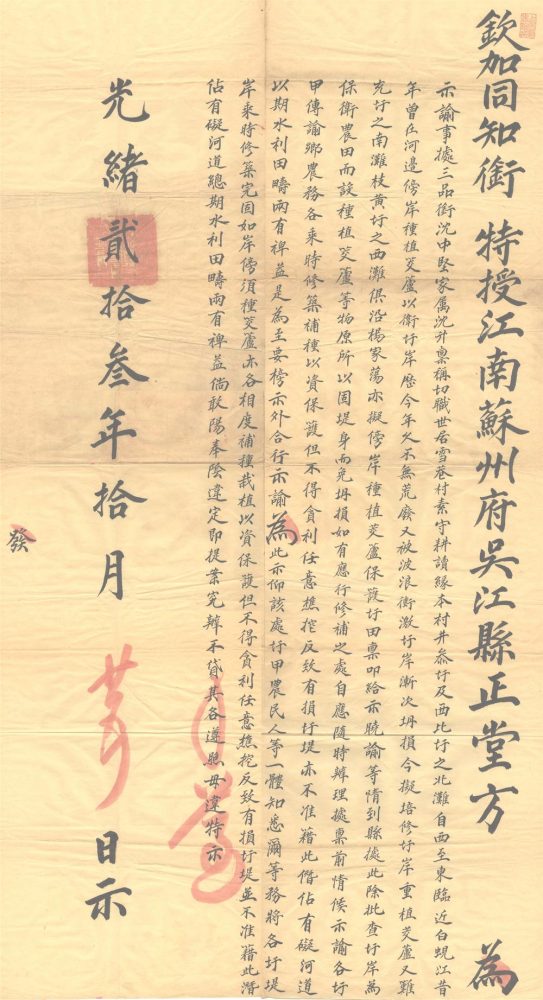 欽加同知銜 特授江南蘇州府吳江縣正堂方 為
示諭事據三品銜沈中堅家屬沈升稟稱切職世居雪巷村素守耕讀緣本村井叅圩及西比圩之北灘自西至東臨近白蜆江昔
年曾在河邊傍岸種植茭蘆以衛圩岸歷今年久不無荒廢又被波浪衝激圩岸漸次坍損今擬培修圩岸重植茭蘆又難
充圩之南灘枝黃圩之西灘俱沿楊家蕩亦擬傍岸種植茭蘆保護圩田稟叩給示曉諭等情到縣據此除批查圩岸為
保衛農田而設種植茭蘆等物原所以固堤身而免坍損如有應行修補之處自應隨時辦理據稟前情候示諭各圩
甲傳諭鄉農務各乘時修築補種以資保護但不得貪利任意樵挖反致有損圩堤亦不准藉此僭佔有礙河道
以期水利田疇兩有裨益是為至要榜示外合行示諭為此示仰該處圩甲農民人等一體知悉爾等務將各圩堤
岸乘時修築完固如岸傍須種茭蘆亦各相度補種栽植以資保護但不得貪利任意樵挖反致有損圩堤並不准藉此潛
佔有礙河道總期水利田疇兩有裨益倘敢陽奉陰違定即提案究辦不貸其各遵照毋違特示
光緒貳拾叁年拾月 日示
發